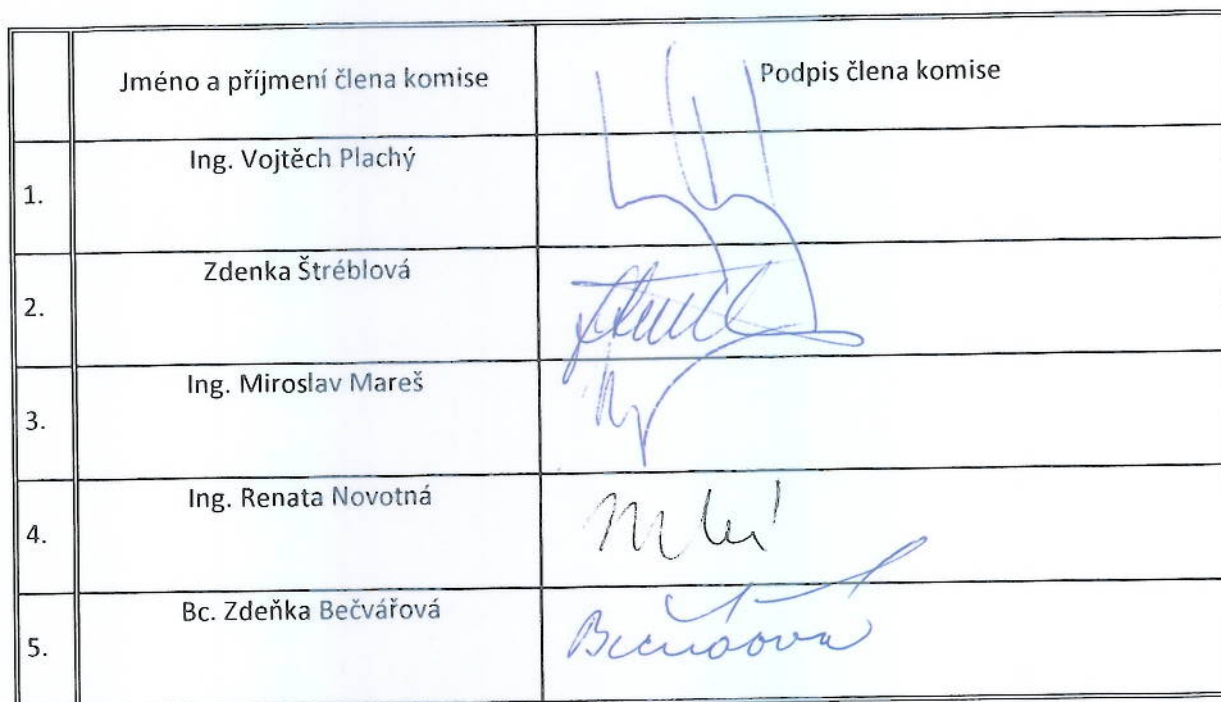 Jméno a příjmení člena komise
Podpis člena komise
1.
Ing. Vojtěch Plachý
2.
Zdenka Štréblová
3.
Ing. Miroslav Mareš
4.
Ing. Renata Novotná
5.
Bc. Zdeňka Bečvářová